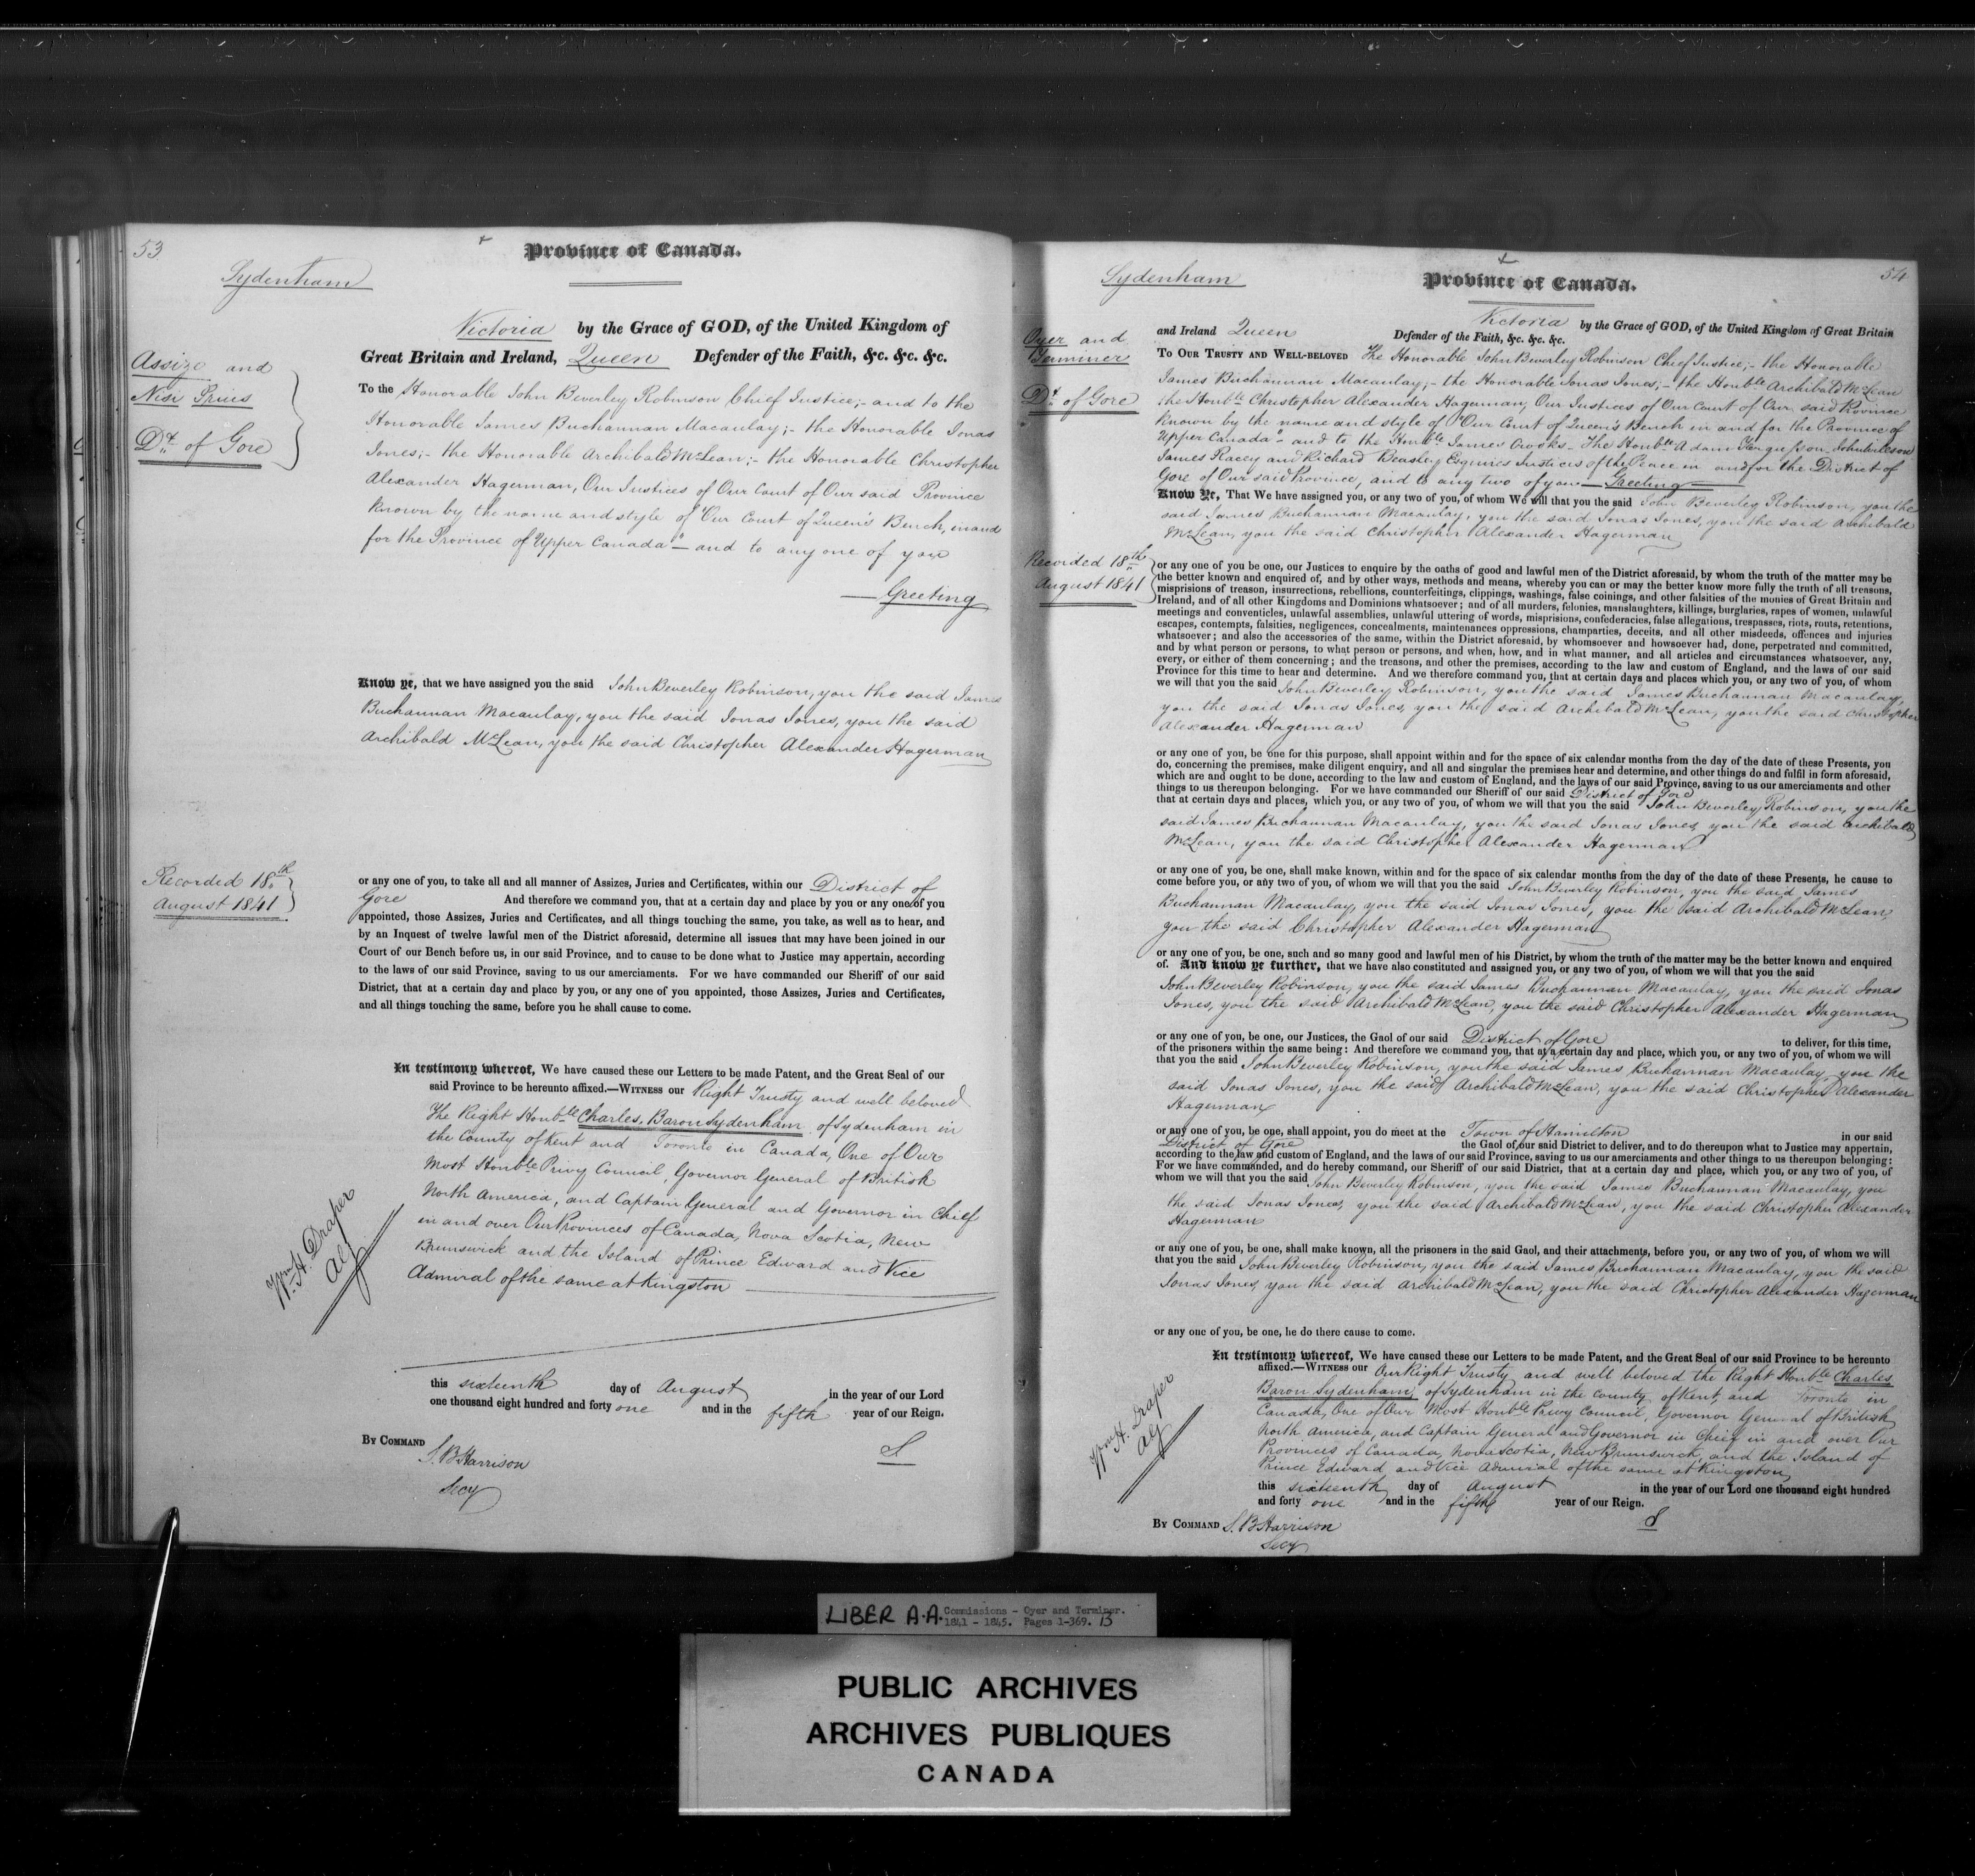 53
Province of Canada.
Sydenham
Victoria by the Grace of GOD, of the United Kingdom of
Great Britain and Ireland, Queen Defender of the Faith, &c. &c. &c.
Assize and
Nisi Prius
Dt. of Gore
To the Honorable John Beverley Robinson Chief Justice;- and to the
Honorable James Buchannan Macaulay;- the Honorable Jonas
Jones;- the Honorable Archibald McLean;- the Honorable Christopher
Alexander Hagerman, Our Justices of Our Court of Our said Province
Known by the name and style of "Our Court of Queen's Bench, in and
for the Province of Upper Canada" - and to any one of you
Greeting
Know ye, that we have assigned you the said John Beverley Robinson, you the said James
Buchannan Macaulay, you the said Jonas Jones, you the said
Archibald McLean, you the said Christopher Alexander Hagerman
Recorded 18th
August 1841
or any one of you, to take all and all manner of Assizes, Juries and Certificates, within our District of
Gore And therefore we command you, that at a certain day and place by you or any one of you
appointed, those Assizes, Juries and Certificates, and all things touching the same, you take, as well as to hear, and
by an Inquest of twelve lawful men of the District aforesaid, determine all issues that may have been joined in our
Court of our Bench before us, in our said Province, and to cause to be done what to Justice may appertain, according
to the laws of our said Province, saving to us our amerciaments. For we have commanded our Sheriff of our said
District, that at a certain day and place by you, or any one of you appointed, those Assizes, Juries and Certificates,
and all things touching the same, before you he shall cause to come.
In testimony whereof, We have caused these our Letters to be made Patent, and the Great Seal of our
said Province to be hereunto affixed.—WITNESS our Right Trusty and well beloved
The Right Honble Charles, Baron Sydenham, of Sydenham in
the County of Kent and Toronto in Canada, One of Our
Most Honble Privy Council, Governor General of British
North America, and Captain General and Governor in Chief
in and over Our Provinces of Canada, Nova Scotia, New
Brunswick and the Island of Prince Edward and Vice
Admiral of the same at Kingston
Wm. H. Draper
AG
this sixteenth day of August in the year of our Lord
one thousand eight hundred and forty one and in the fifth year of our Reign.
BY COMMAND
S. B. Harrison
Secy
S
54
Province of Canada.
Sydenham
Victoria by the Grace of GOD, of the United Kingdom of Great Britain
and Ireland Queen Defender of the Faith, &c. &c. &c.
Oyer and
Terminer
Dt. of Gore
TO OUR TRUSTY AND WELL-BELOVED The Honorable John Beverley Robinson Chief Justice;- the Honorable
James Buchannan Macaulay;- the Honorable Jonas Jones;- the Honble Archibald McLean
the Honble Christopher Alexander Hagerman, Our Justices of Our Court of Our said Province
Known by the name and style of "Our Court of Queen's Bench in and for the Province of
Upper Canada" - and to the Honble James Crooks - The Honble Adam Fergusson - John Wilson
James Racey and Richard Beasley Esquires Justices of the Peace in and for the District of
Gore of Our said Province, and to any two of you Greeting
Know Ye, That We have assigned you, or any two of you, of whom We will that you the said John Beverley Robinson, you the
said James Buchannan Macaulay, you the said Jonas Jones, you the said Archibald
McLean, you the said Christopher Alexander Hagerman
Recorded 18th
August 1841
or any one of you be one, our Justices to enquire by the oaths of good and lawful men of the District aforesaid, by whom the truth of the matter may be
the better known and enquired of, and by other ways, methods and means, whereby you can or may the better know more fully the truth of all treasons,
misprisions of treason, insurrections, rebellions, counterfeitings, clippings, washings, false coinings, and other falsities of the monies of Great Britain and
Ireland, and of all other Kingdoms and Dominions whatsoever; and of all murders, felonies, manslaughters, killings, burglaries, rapes of women, unlawful
meetings and conventicles, unlawful assemblies, unlawful uttering of words, misprisions, confederacies, false allegations, trespasses, riots, routs, retentions,
escapes, contempts, falsities, negligences, concealments, maintenances oppressions, champarties, deceits, and all other misdeeds, offences and injuries
whatsoever; and also the accessories of the same, within the District aforesaid, by whomsoever and howsoever had, done, perpetrated and committed,
and by what person or persons, to what person or persons, and when, how, and in what manner, and all articles and circumstances whatsoever, any,
every, or either of them concerning; and the treasons, and other the premises, according to the law and custom of England, and the laws of our said
Province for this time to hear and determine. And we therefore command you, that at certain days and places which you, or any two of you, of whom
we will that you the said John Beverley Robinson, you the said James Buchannan Macaulay,
you the said Jonas Jones, you the said Archibald McLean, you the said Christopher
Alexander Hagerman
or any one of you, be one for this purpose, shall appoint within and for the space of six calendar months from the day of the date of these Presents, you
do, concerning the premises, make diligent enquiry, and all and singular the premises hear and determine, and other things do and fulfil in form aforesaid,
which are and ought to be done, according to the law and custom of England, and the laws of our said Province, saving to us our amerciaments and other
things to us thereupon belonging. For we have commanded our Sheriff of our said District of Gore
that at certain days and places, which you, or any two of you, of whom we will that you the said John Beverley Robinson, you the
said James Buchannan Macaulay, you the said Jonas Jones, you the said Archibald
McLean, you the said Christopher Alexander Hagerman
or any one of you, be one, shall make known, within and for the space of six calendar months from the day of the date of these Presents, he cause to
come before you, or any two of you, of whom we will that you the said John Beverley Robinson, you the said James
Buchannan Macaulay, you the said Jonas Jones, you the said Archibald McLean,
you the said Christopher Alexander Hagerman
or any one of you, be one, such and so many good and lawful men of his District, by whom the truth of the matter may be the better known and enquired
of. And know ye further, that we have also constituted and assigned you, or any two of you, of whom we will that you the said
John Beverley Robinson, you the said James Buchannan Macaulay, you the said Jonas
Jones, you the said Archibald McLean, you the said Christopher Alexander Hagerman
or any one of you, be one, our Justices, the Gaol of our said District of Gore to deliver, for this time,
of the prisoners within the same being: And therefore we command you, that at a certain day and place, which you, or any two of you, of whom we will
that you the said John Beverley Robinson, you the said James Buchannan Macaulay, you the
said Jonas Jones, you the said Archibald McLean, you the said Christopher Alexander
Hagerman
or any one of you, be one, shall appoint, you do meet at the Town of Hamilton in our said
District of Gore the Gaol of our said District to deliver, and to do thereupon what to Justice may appertain,
according to the law and custom of England, and the laws of our said Province, saving to us our amerciaments and other things to us thereupon belonging:
For we have commanded, and do hereby command, our Sheriff of our said District, that at a certain day and place, which you, or any two of you, of
whom we will that you the said John Beverley Robinson, you the said James Buchannan Macaulay, you
the said Jonas Jones, you the said Archibald McLean, you the said Christopher Alexander
Hagerman
or any one of you, be one, shall make known, all the prisoners in the said Gaol, and their attachments, before you, or any two of you, of whom we will
that you the said John Beverley Robinson, you the said James Buchannan Macaulay, you the said
Jonas Jones, you the said Archibald McLean, you the said Christopher Alexander Hagerman
or any one of you, be one, he do there cause to come.
In testimony whereof, We have caused these our Letters to be made Patent, and the Great Seal of our said Province to be hereunto
affixed.—WITNESS our Our Right Trusty and well beloved the Right Honble Charles
Baron Sydenham, of Sydenham in the County of Kent, and Toronto in
Canada, One of Our Most Honble Privy Council, Governor General of British
North America, and Captain General and Governor in Chief in and over Our
Provinces of Canada, Nova Scotia, New Brunswick, and the Island of
Prince Edward and Vice Admiral of the same at Kingston
Wm. H. Draper
AG
this sixteenth day of August in the year of our Lord one thousand eight hundred
and forty one and in the fifth year of our Reign.
BY COMMAND S. B. Harrison
Secy
S
LIBER A.A. Commissions - Oyer and Terminer.
1841 - 1845. Pages 1-369. 13
PUBLIC ARCHIVES
ARCHIVES PUBLIQUES
CANADA